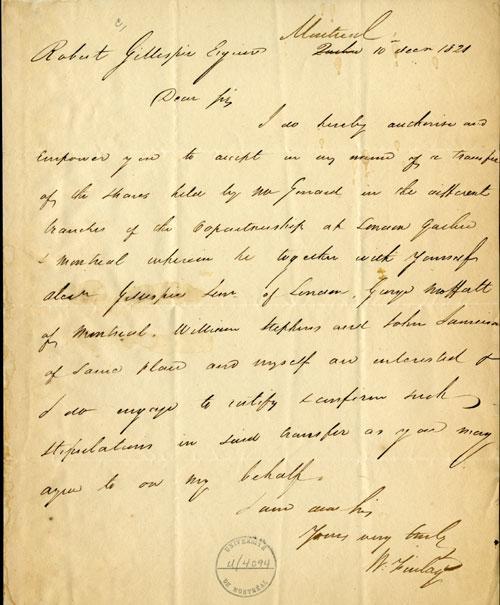 Montreal
Quebec 10th Decr 1821
Robert Gillespie Esquire
Dear Sir,
I do hereby authorise and
empower you to accept in my name of a transfer
of the shares held by Mr Gerrard in the different
branches of the Copartnership at London Quebec
& Montreal wherein he together with yourself
Alexr Gillespie Senr of London, George Moffatt
of Montreal, William Stephens and John Jamieson
of same place and myself are interested &
I do engage to ratify & confirm such
stipulations in said transfer as you may
agree to on my behalf.
I am dear Sir
Yours very truly
W. Finlay
UNIVERSITÉ
U/4094
DE MONTRÉAL